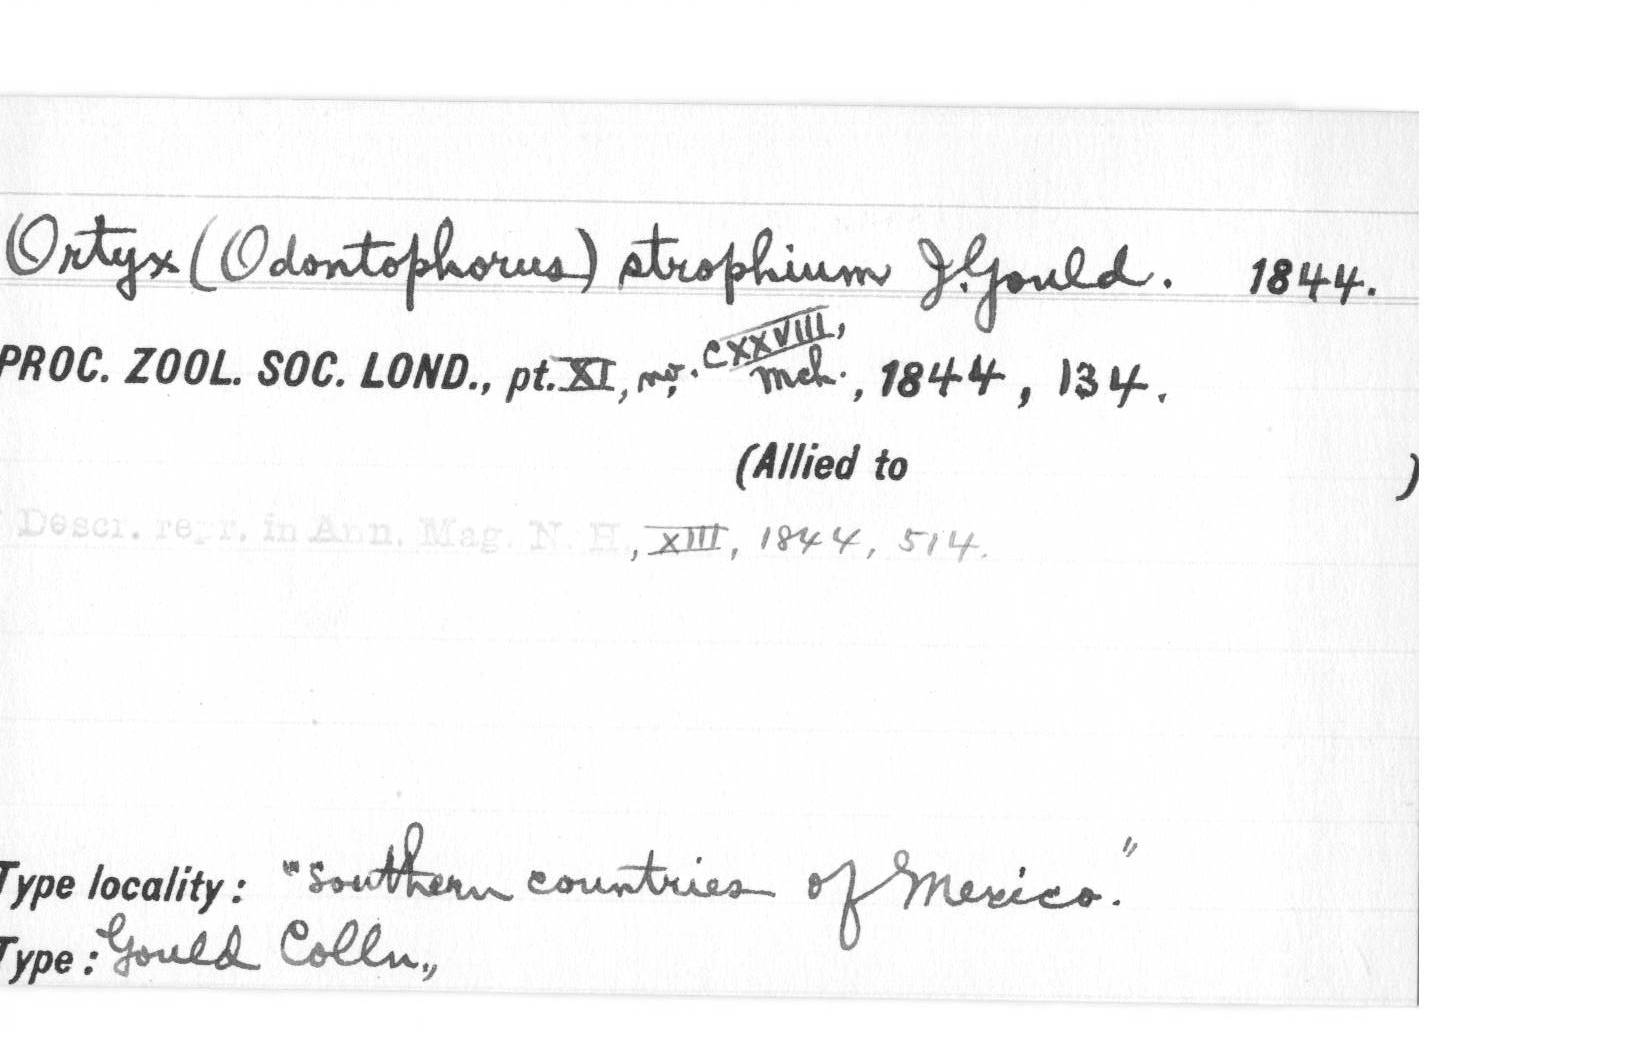 Ortyx (Odontophorus) strophium J. Gould. 1844.
PROC. ZOOL. SOC. LOND., pt. XI, no. CXXVIII, Mch., 1844, 134.
(Allied to )
Descr. repr. in Ann. Mag. N. H., XIII, 1844, 514.
Type locality: "Southern countries of Mexico."
Type: Gould Colln.,